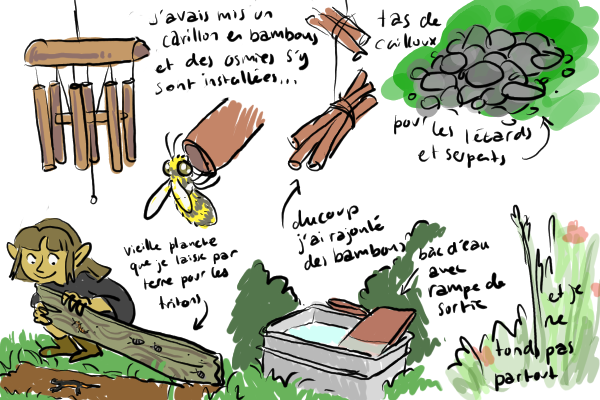 j'avais mis un
carillon en bambous
et des osmies s'y
sont installées...
tas de
cailloux
pour les lézards
et serpents
ducoup
j'ai rajouté
des bambous
vieille planche
que je laisse par
terre pour les
tritons
bac d'eau
avec
rampe de
sortie
et je
ne
tond pas
partout